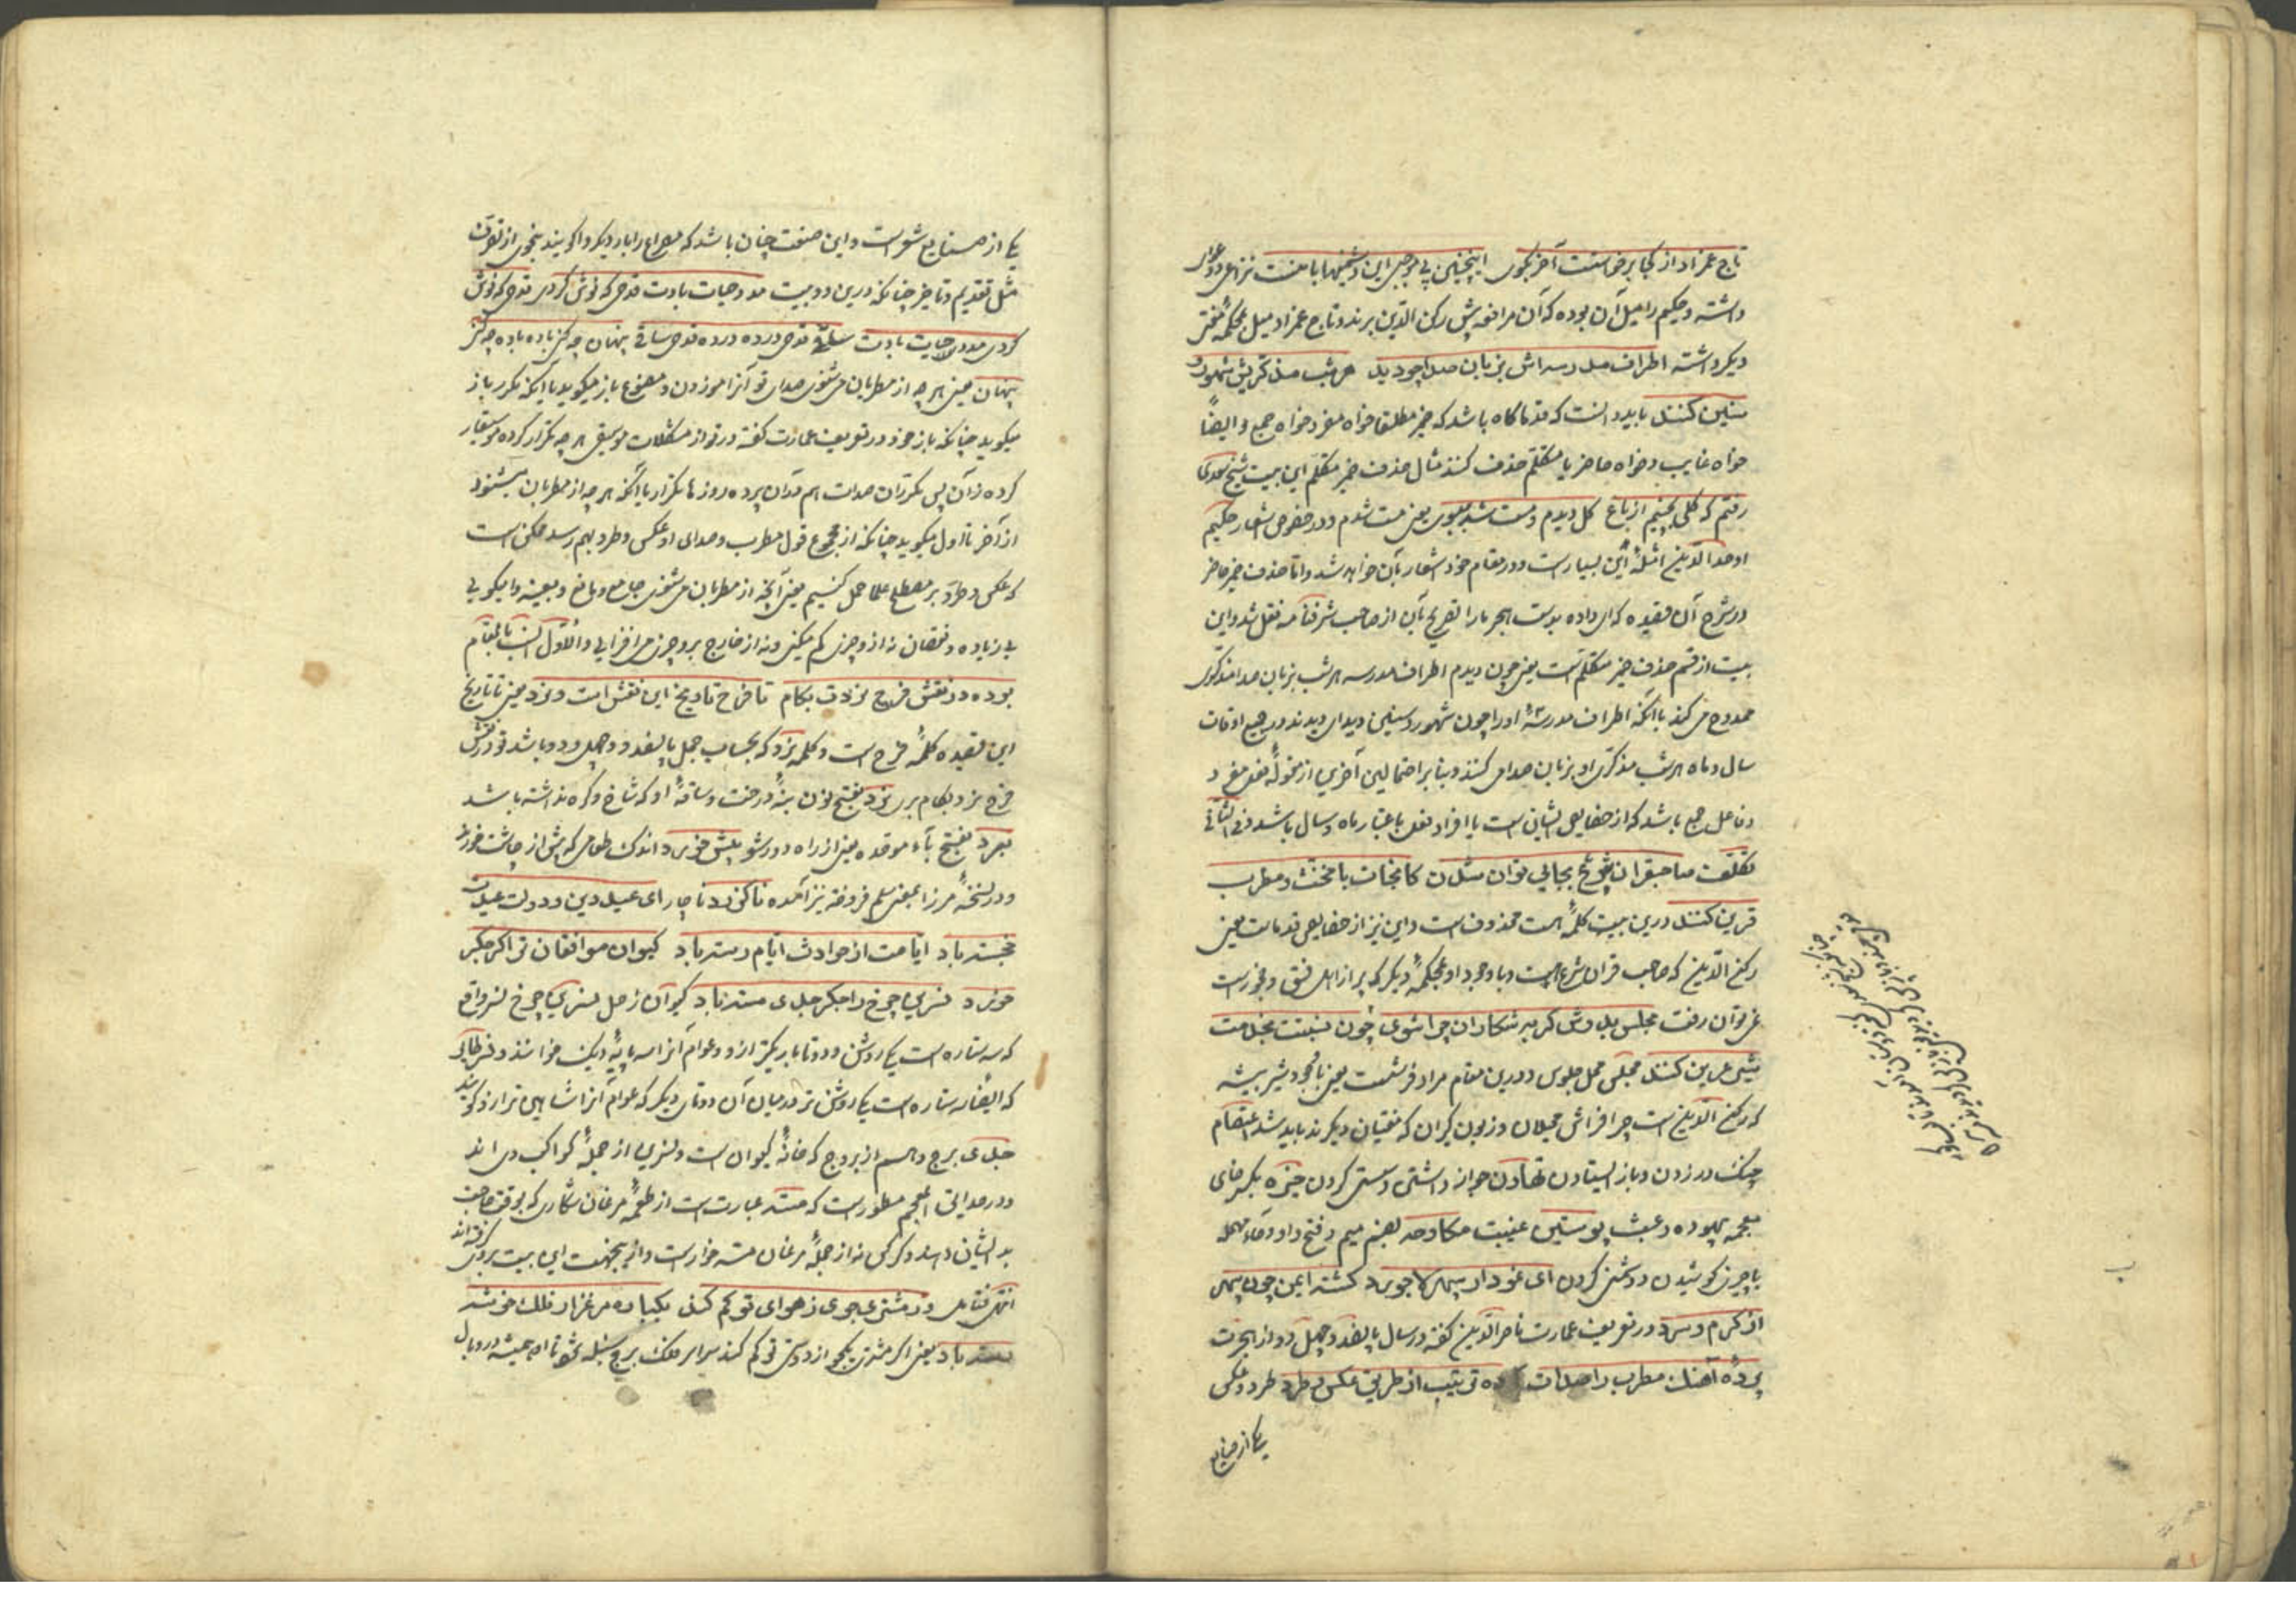 تاج عمزاد از کجا برخواستت آخر بکوی اینچنین بی موجبی این دشمنیها با منت نزاعی و دعوای
داشته و حکیم را میل آن بوده که آن مرافعه پیش رکن الدین برند و تاج عمزاد میل بمحکمه
دیگر داشته اطراف مدرسه اش بزبان صدا چو دید هر شب مذکریش شهور و
سنین کنند باید دانست که قدما کاه باشد که ضمیر مطلقا خواه مفرد خواه جمع و ایضاً
خواه غایب و خواه حاضر یا متکلم حذف کنند مثال حذف ضمیر متکلم این بیت شیخ سعدی
رفتم که کلی بچینم از باغ کل دیدم و مست شد ببوی یعنی مست شدم و در خصوص اشعار حکیم
اوحد الدین امثلهٔ این بسیارست و در مقام خود اشعار بآن خواهد شد و اما حذف ضمیر حاضر
در شرح آن قصیده که ای داده بدست هجر ما را تصریح بآن از صاحب شرفنامه نقل شد و این
بیت از قسم حذف ضمیر متکلم است یعنی چون دیدم اطراف مدرسه هر شب بزبان صدا مذکری
ممدوح می کند با آنکه اطراف مدرسهٔ او را چون شهور و سنین دیدای دیدند در جمیع اوقات
سال و ماه هر شب مذکری او بزبان صدا می کنند و بنابر احتمالین آخرین از مقولهٔ فعل مفرد
و فاعل جمع باشد که از خصایص ایشان است یا افراد فعل باعتبار ماه و سال باشد فی الثانی
کفتمت صاحبقران شرع بجایی توان شدن کانجات با مخنث و مطرب
قرین کنند درین بیت کلمهٔ است محذوف است و این نیز از خصایص قدماست یعنی
رکن الدین که صاحب قران شرع است و با وجود او بمحکمهٔ دیگر که پر از اهل فسق و فجورست
نمی توان رفت مجلس بدوش کر بر شکاران چرا شوی چون نسبتت بخدمت
شیر عرین کنند مجلس محل جلوس و درین مقام مراد فرشست یعنی با وجود شیر بیشه
که رکن الدین است چرا فراش محیلان و زبون کیران که مفتیان دیگرند باید شد اعتصام
چنک در زدن و باز ایستادن تهاون خوار داشتن و سستی کردن خیره بکسر خای
معجمه بیهوده و عبث پوستین غیبت مکاوحه بضم میم و فتح واو و حاء مهمله
با چیزی کوشیدن و دشمنی کردن ای نمودار سپهر لاجورد کشته ایمن چون سپهر
از کرم و سرد در تعریف عمارت ناصر الدین گفته در سال پانصد و چهل و دو از هجرت
پردهٔ آهنک مطرب را صدات داده ترتیب از طریق عکس و طرد طرد و عکس
یکی از صنایع
یکی از صنایع شعر است و این صنعت چنان باشد که مصراع را بار دیگر واکویند بنحوی از تصرف
مثل تقدیم و تاخیر چنانکه درین دو بیت مدد حیات بادت قدحی که نوش کردی قدحی که نوش
کردی مدد حیات بادت ساقی قدحی درده درده قدحی ساقی پنهان چه کنی باده باده چه کنی
پنهان یعنی هر چه از مطربان می شنوی صدای تو آنرا موزون و مصنوع باز میکوید با آنکه مکرر باز
میکوید چنانکه باز خود در تعریف عمارت کفته در تو از مشکلات موسیقی هر چه تکرار کرده موسیقار
کرده زان پس مکرران صدات هم در آن پرده روزها تکرار یا آنکه هر چه از مطربان میشنود
از آخر تا اول میکوید چنانکه از مجموع قول مطرب و صدای او عکس و طرد بهم رسد ممکن است
که عکس و طرد بر مصطلح علما حمل کنیم یعنی آنچه از مطربان می شنوی جامع و مانع و بعینه وامیکویی
بی زیاده و نقصان نه ازو چیزی کم میکنی و نه از خارج برو چیزی می افزایی و الاول انسب بالمقام
بوده در نقش فرح نزدت بکام تا فرح تاریخ این نقش است و نزد یعنی تا تاریخ
این قصیده کلمهٔ فرح است و کلمه نزد که بحساب جمل پانصد و چهل و دو باشد تو در نقش
فرح نزد بکام بری نزد بفتح نون بنهٔ درخت و ساقهٔ او که شاخ و کره نداشته باشد
ببرد بفتح باء موحده یعنی از راه دور شو پیش خورد اندک طعامی که پیش از چاشت خورند
و در نسخهٔ میرزا بمعنی سلم فروخته نیز آمده ناکزرد ناچار ای عید دین و دولت عیدت
خجسته باد ایامت از حوادث ایام رسته باد کیوان موافقان ترا کر جکر
خورد نسرین چرخ را جکر جدی مسته باد کیوان زحل نسرین چرخ نسر واقع
که سه ستاره است یکی روشن و دو تا باریکتر ازو و عوام آنرا سه پایهٔ دیک خوانند و نسر طایر
که ایضا سه ستاره است یکی روشن تر در میان آن دو تای دیکر که عوام آنرا شاهین ترازو کویند
جدی برج دهم از بروج که خانهٔ کیوان است و نسرین از جملهٔ کواکب وی اند
و در حدایق المعجم مسطورست که مسته عبارت است از طعمهٔ مرغان شکاری که بوقت حاجت
بدیشان دهند و کرکس نه از جملهٔ مرغان مسته خوارست و ازینجهت این بیت بروی کرفته اند
انتهی فتامل ور مشتری جوی ز هوای تو کم کند یکباره مرغزار فلک خوشه
رسته باد یعنی اکر مشتری یکجو از دوستی تو کم کند سراسر فلک برج سنبله شود تا او همیشه در وبال